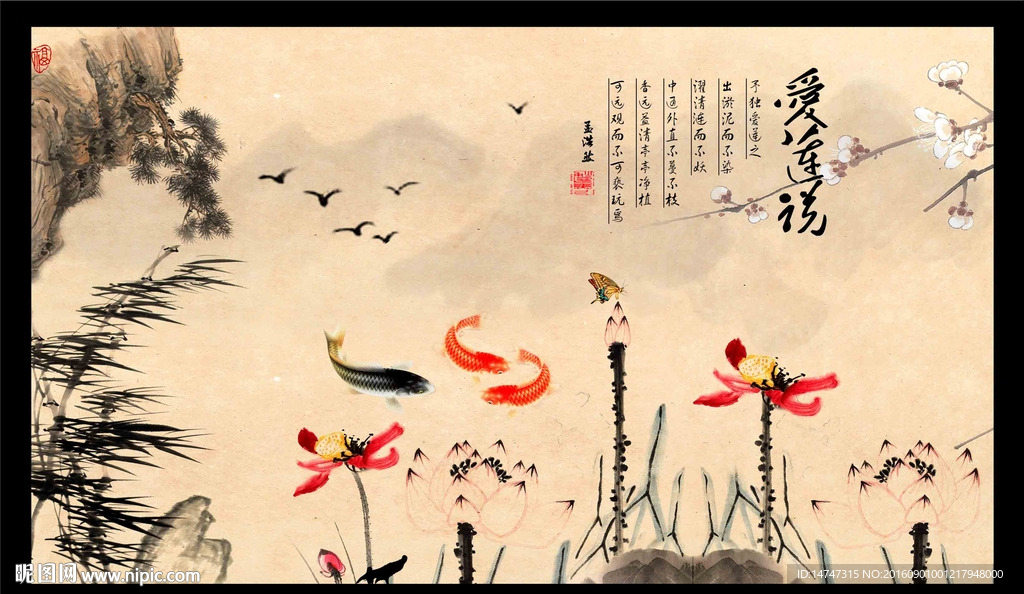 福
爱莲说
予独爱莲之
出淤泥而不染
濯清涟而不妖
中通外直不蔓不枝
香远益清亭亭净植
可远观而不可亵玩焉
孟浩然
昵图网 www.nipic.com
ID:14747315 NO:20160901001217948000